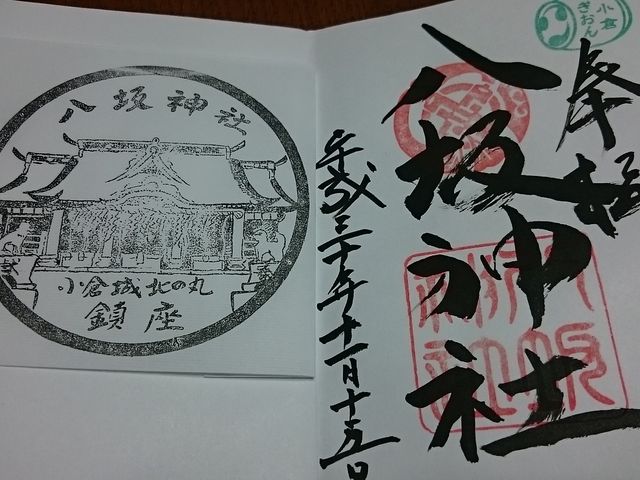 八坂神社
小倉城北の丸
鎮座
小倉
ぎおん
奉拝
八坂神社
八坂
神社
平成三十年十一月十五日